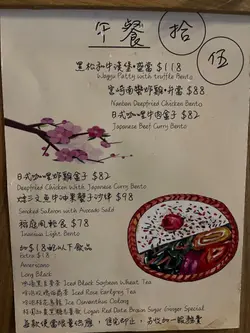 午餐
拾
伍
黑松和牛漢堡・便當 $118
Wagyu Patty with truffle Bento
宮崎南蠻炸雞・弁當 $88
Nanban Deepfried Chicken Bento
日式咖哩牛肉盒子 $82
Japanese Beef Curry Bento
日式咖哩炸雞盒子 $82
Deepfried Chicken with Japanese Curry Bento
煙三文魚牛油果蟹子沙律 $98
Smoked Salmon with Avocado Salad
稻庭烏輕食 $78
Inaniwa Light Bento
加$18配以下飲品
Extra $18
Americano
Long Black
Iced Black Soybean Wheat Tea
Iced Rose Earlgrey Tea
Ice Osmanthus Oolong
Logan Red Date Brown Sugar Ginger Special